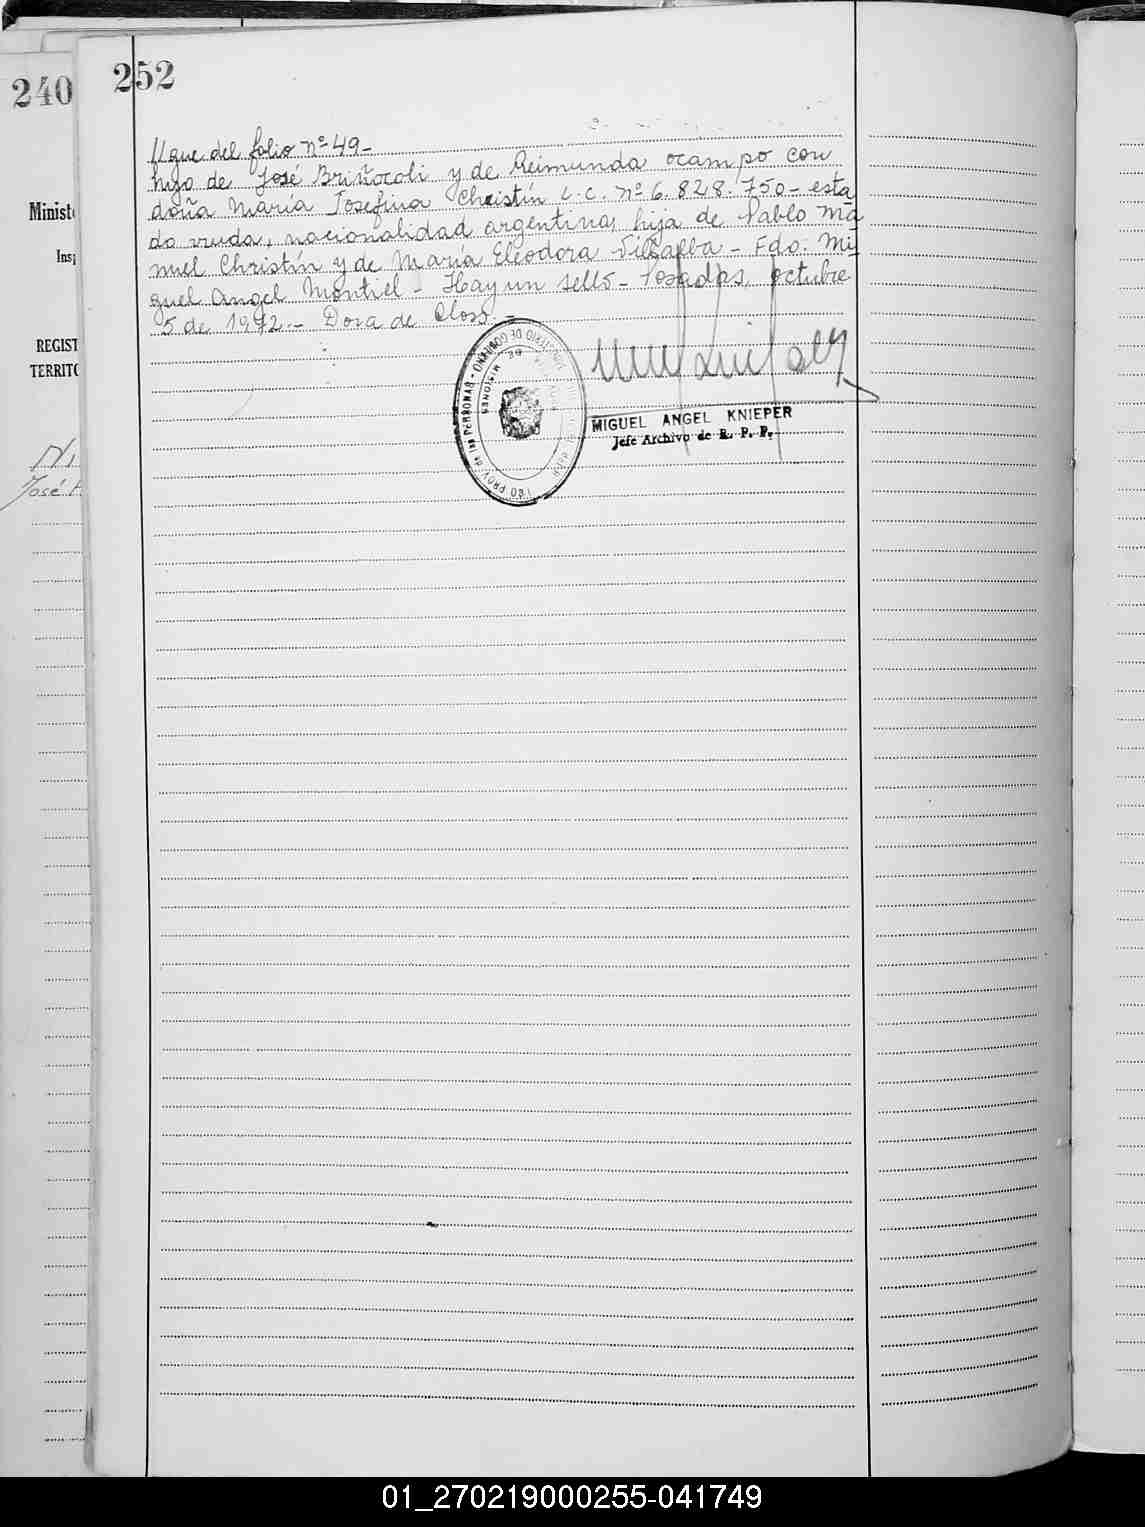 240
252
Minist
Insp
REGIST
TERRITO
José
Sigue del folio nº 49-
hijo de José Briñocoli y de Reimunda ocampo con
doña María Josefina Christín L.C. nº 6.828.750- esta
do viuda, nacionalidad argentina, hija de Pablo Ma
nuel Christín y de María Eleodora Villalba - Fdo. Mi
guel Angel Montiel - Hay un sello - Posadas, octubre
5 de 1972.- Dora de Closs.-
PROV. de las PERSONAS
MISIONES
MIGUEL ANGEL KNIEPER
Jefe Archivo de R. P. P.
01_270219000255-041749